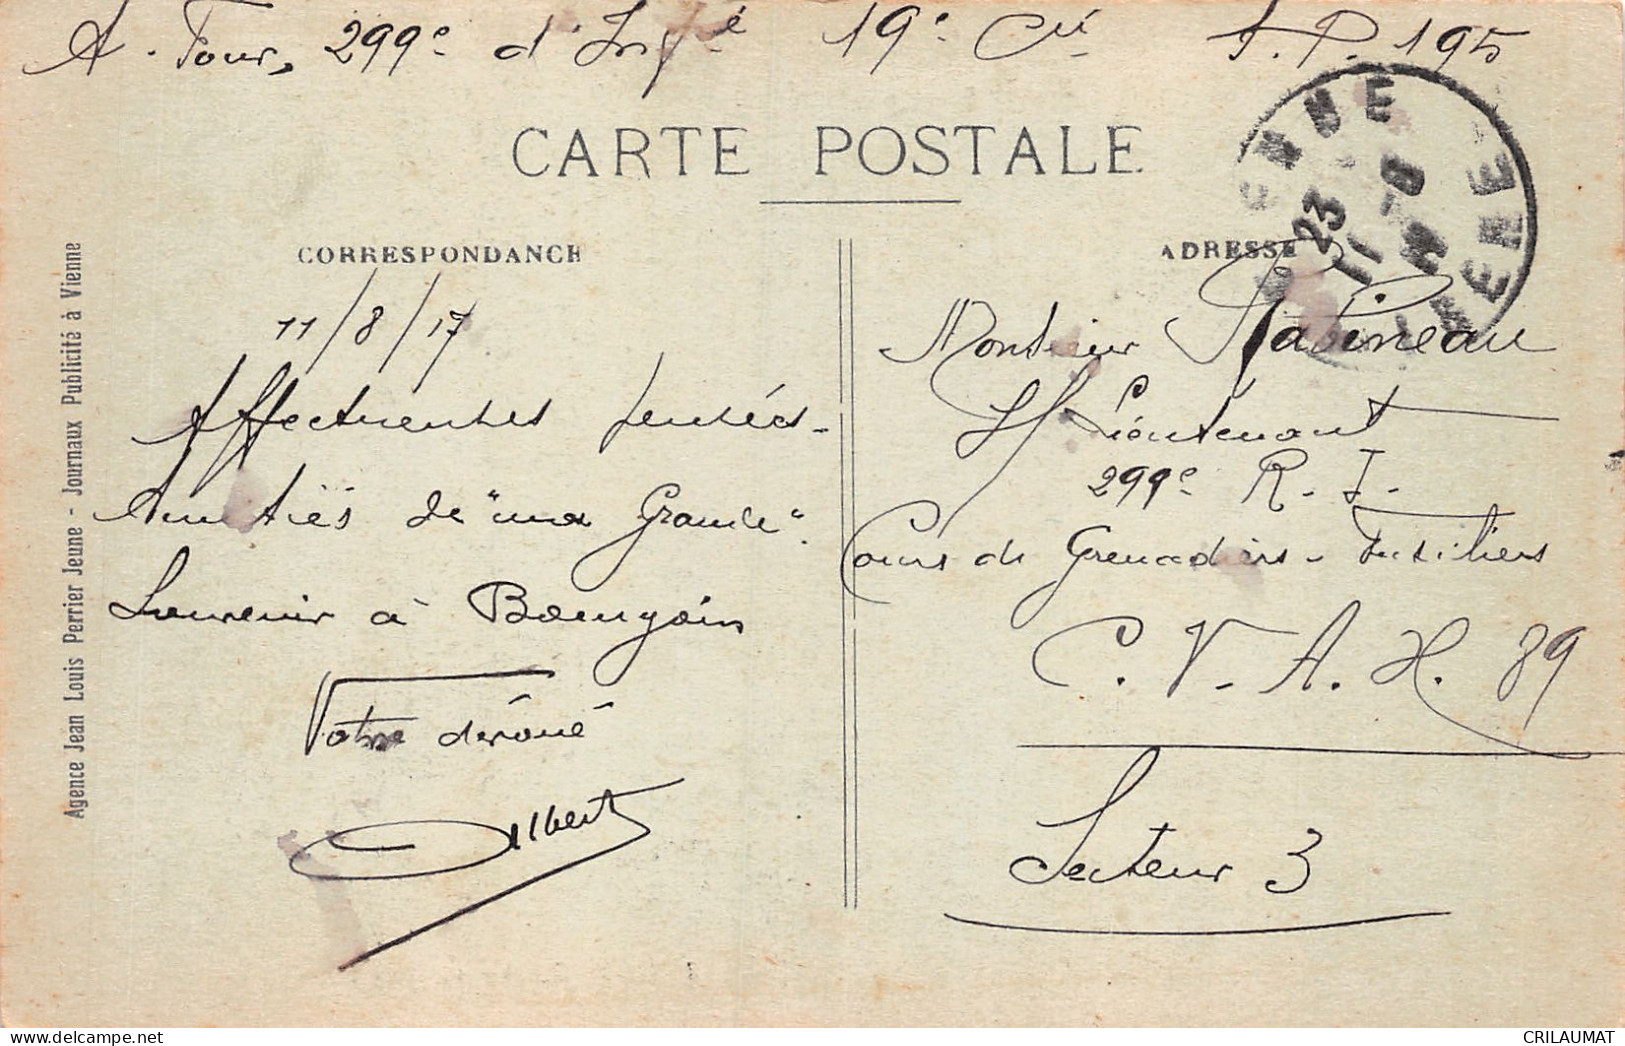 A. Four, 299e d'Infie 19e Cie S.P. 195
CARTE POSTALE
CORRESPONDANCE
ADRESSE
VIENNE
23
11-8
ISERE
11/8/17
Affectueuses pensées.
Amitiés de "ma Grande".
Souvenir à Bourgoin
Votre dévoué
Albert
Monsieur Rabineau
S/Lieutenant
299e R.I.
Cours de Grenadiers-Fusiliers
C.V.A.H. 89
Secteur 3
Agence Jean Louis Perrier Jeune - Journaux Publicité à Vienne
CRILAUMAT